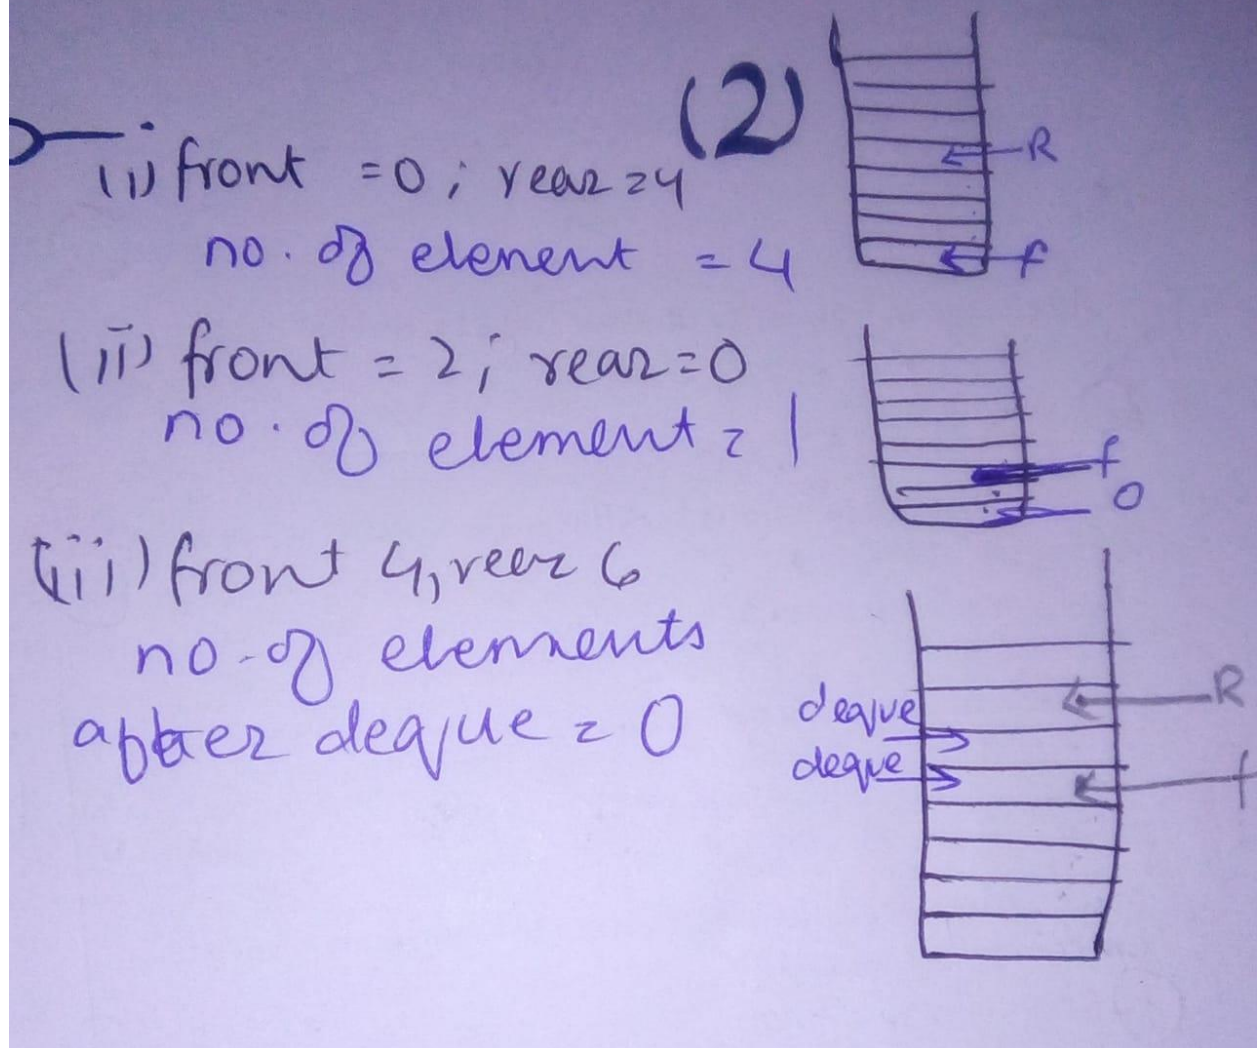 (2)
(i) front = 0; rear = 4
no. of element = 4
R
f
(ii) front = 2; rear = 0
no. of element = 1
f
0
(iii) front 4, rear 6
no. of elements
after deque = 0
R
deque
deque
f